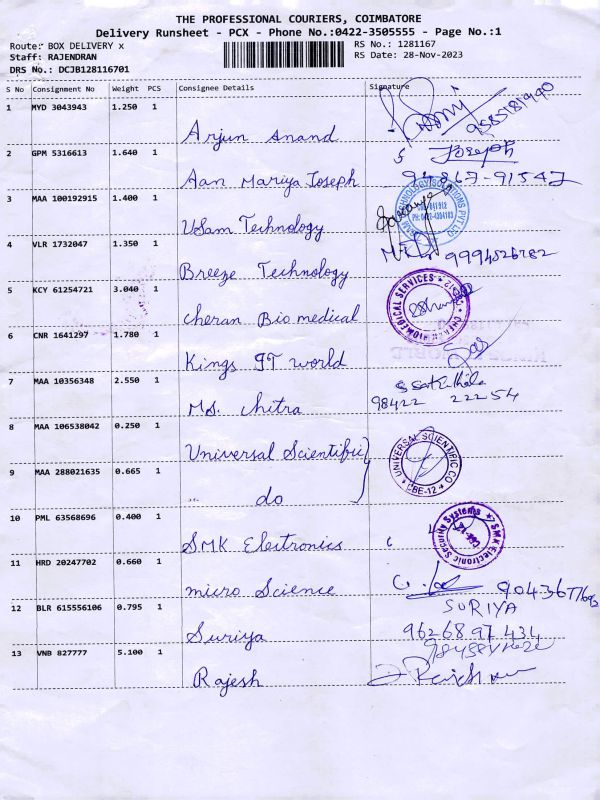 THE PROFESSIONAL COURIERS, COIMBATORE
Delivery Runsheet - PCX - Phone No.:0422-3505555 - Page No.:1
Route: BOX DELIVERY x
RS No.: 1281167
Staff: RAJENDRAN
RS Date: 28-Nov-2023
DRS No.: DCJB128116701
S No Consignment No Weight PCS Consignee Details Signature
1 MYD 3043943 1.250 1
9585181990
Arjun Anand
2 GPM 5316613 1.640 1
Joseph
Aan Mariya Joseph 94867-91547
3 MAA 100192915 1.400 1
USam Technology
4 VLR 1732047 1.350 1
Breeze Technology 9994526782
5 KCY 61254721 3.040 1
BIOMEDICAL SERVICES
Cheran Bio medical
6 CNR 1641297 1.780 1
Kings IT world
7 MAA 10356348 2.550 1
Ms. Chitra 98422 22254
8 MAA 106538042 0.250 1
Universal Scientific
UNIVERSAL SCIENTIFIC CO
CBE-12
9 MAA 288021635 0.665 1
" do
10 PML 63568696 0.400 1
SMK Electronics
SMK Electronic Security Systems
11 HRD 20247702 0.660 1
micro Science
12 BLR 615556106 0.795 1
SURIYA
Suriya 9626897434
13 VNB 827777 5.100 1
Rajesh